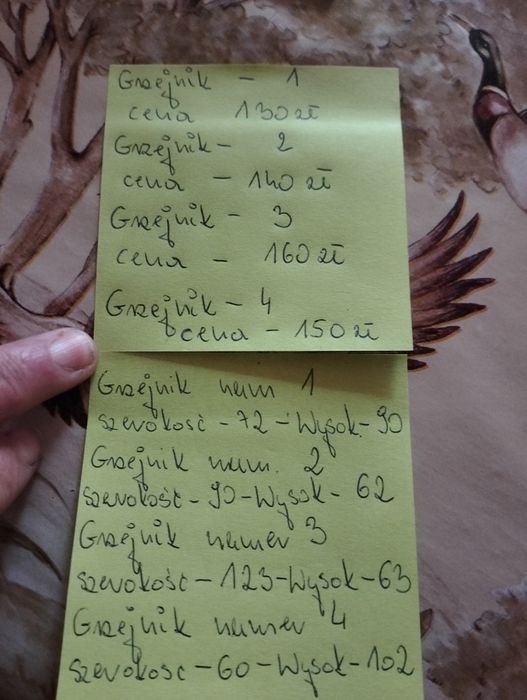 Grzejnik - 1
cena 130 zł
Grzejnik - 2
cena - 140 zł
Grzejnik - 3
cena - 160 zł
Grzejnik - 4
cena - 150 zł
Grzejnik num 1
szerokość - 72 - Wysok. - 90
Grzejnik num. 2
szerokość - 90 - Wysok - 62
Grzejnik numer 3
szerokość - 123 - Wysok - 63
Grzejnik numer 4
szerokosc - 60 - Wysok - 102